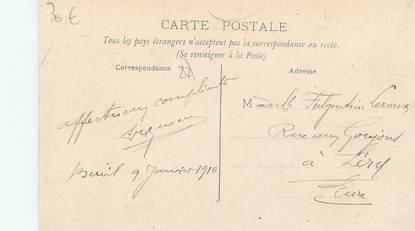 30 €
CARTE POSTALE
Tous les pays étrangers n'acceptent pas la correspondance au recto.
(Se renseigner à la Poste)
Correspondance
27
Adresse
affectueux compliments
Bueil 9 Janvier 1910
Mademlle Fulgentin Leroux
Rue aux Goujons
à Léry
Eure